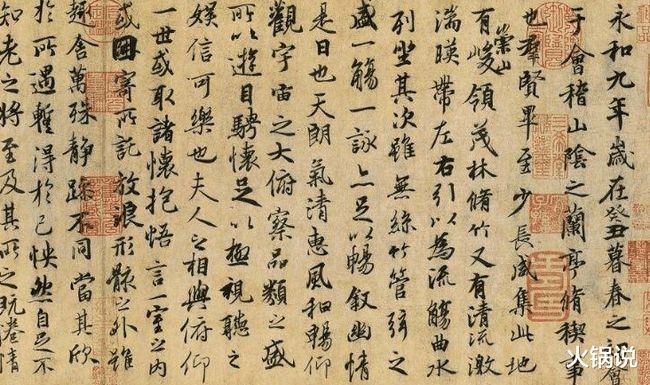 永和九年歲在癸丑暮春之初會
于會稽山陰之蘭亭脩禊事
也羣賢畢至少長咸集此地
有崇山峻領茂林脩竹又有清流激
湍暎帶左右引以為流觴曲水
列坐其次雖無絲竹管弦之
盛一觴一詠亦足以暢敘幽情
是日也天朗氣清惠風和暢仰
觀宇宙之大俯察品類之盛
所以遊目騁懷足以極視聽之
娛信可樂也夫人之相與俯仰
一世或取諸懷抱悟言一室之內
或因寄所託放浪形骸之外雖
趣舍萬殊靜躁不同當其欣
於所遇蹔得於己怏然自足不
知老之將至及其所之既惓情
火锅说